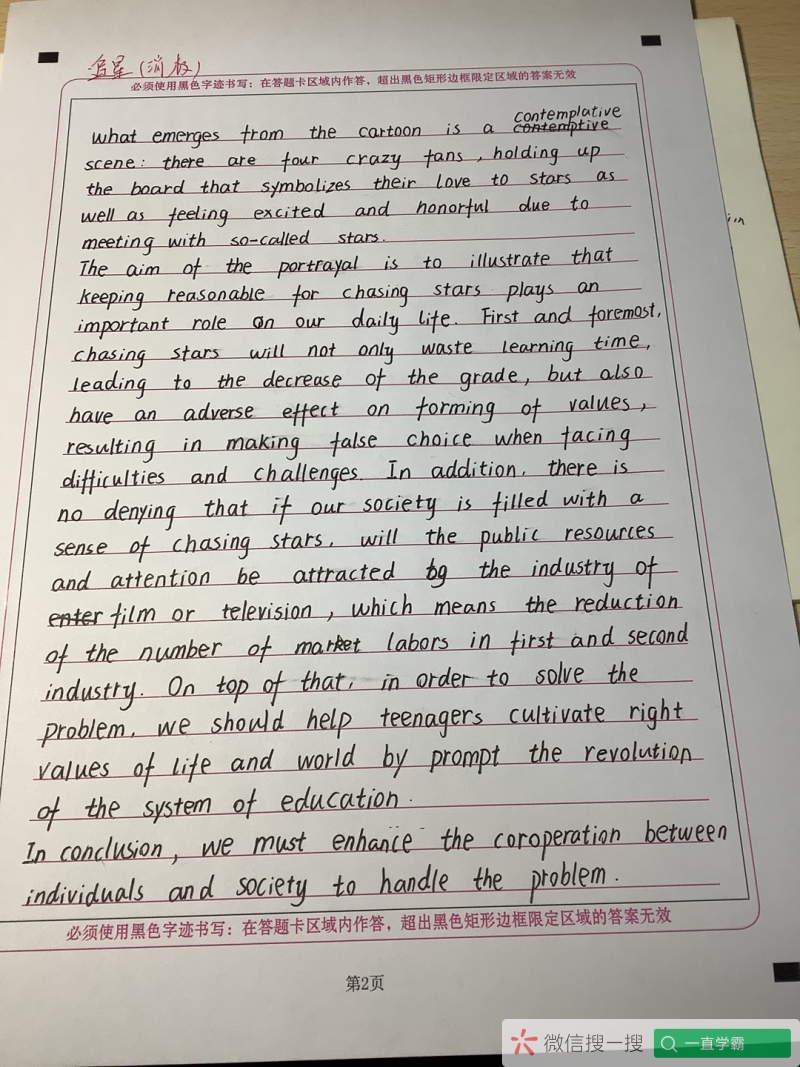 追星(消极)
必须使用黑色字迹书写：在答题卡区域内作答，超出黑色矩形边框限定区域的答案无效
contemplative
what emerges from the cartoon is a contemptive
scene: there are four crazy fans, holding up
the board that symbolizes their love to stars as
well as feeling excited and honorful due to
meeting with so-called stars.
The aim of the portrayal is to illustrate that
keeping reasonable for chasing stars plays an
important role on our daily life. First and foremost,
chasing stars will not only waste learning time,
leading to the decrease of the grade, but also
have an adverse effect on forming of values,
resulting in making false choice when facing
difficulties and challenges. In addition, there is
no denying that if our society is filled with a
sense of chasing stars, will the public resources
and attention be attracted bg the industry of
enter film or television, which means the reduction
of the number of market labors in first and second
industry. On top of that, in order to solve the
problem, we should help teenagers cultivate right
values of life and world by prompt the revolution
of the system of education.
In conclusion, we must enhance the coroperation between
individuals and society to handle the problem.
必须使用黑色字迹书写：在答题卡区域内作答，超出黑色矩形边框限定区域的答案无效
第2页
微信搜一搜 一直学霸